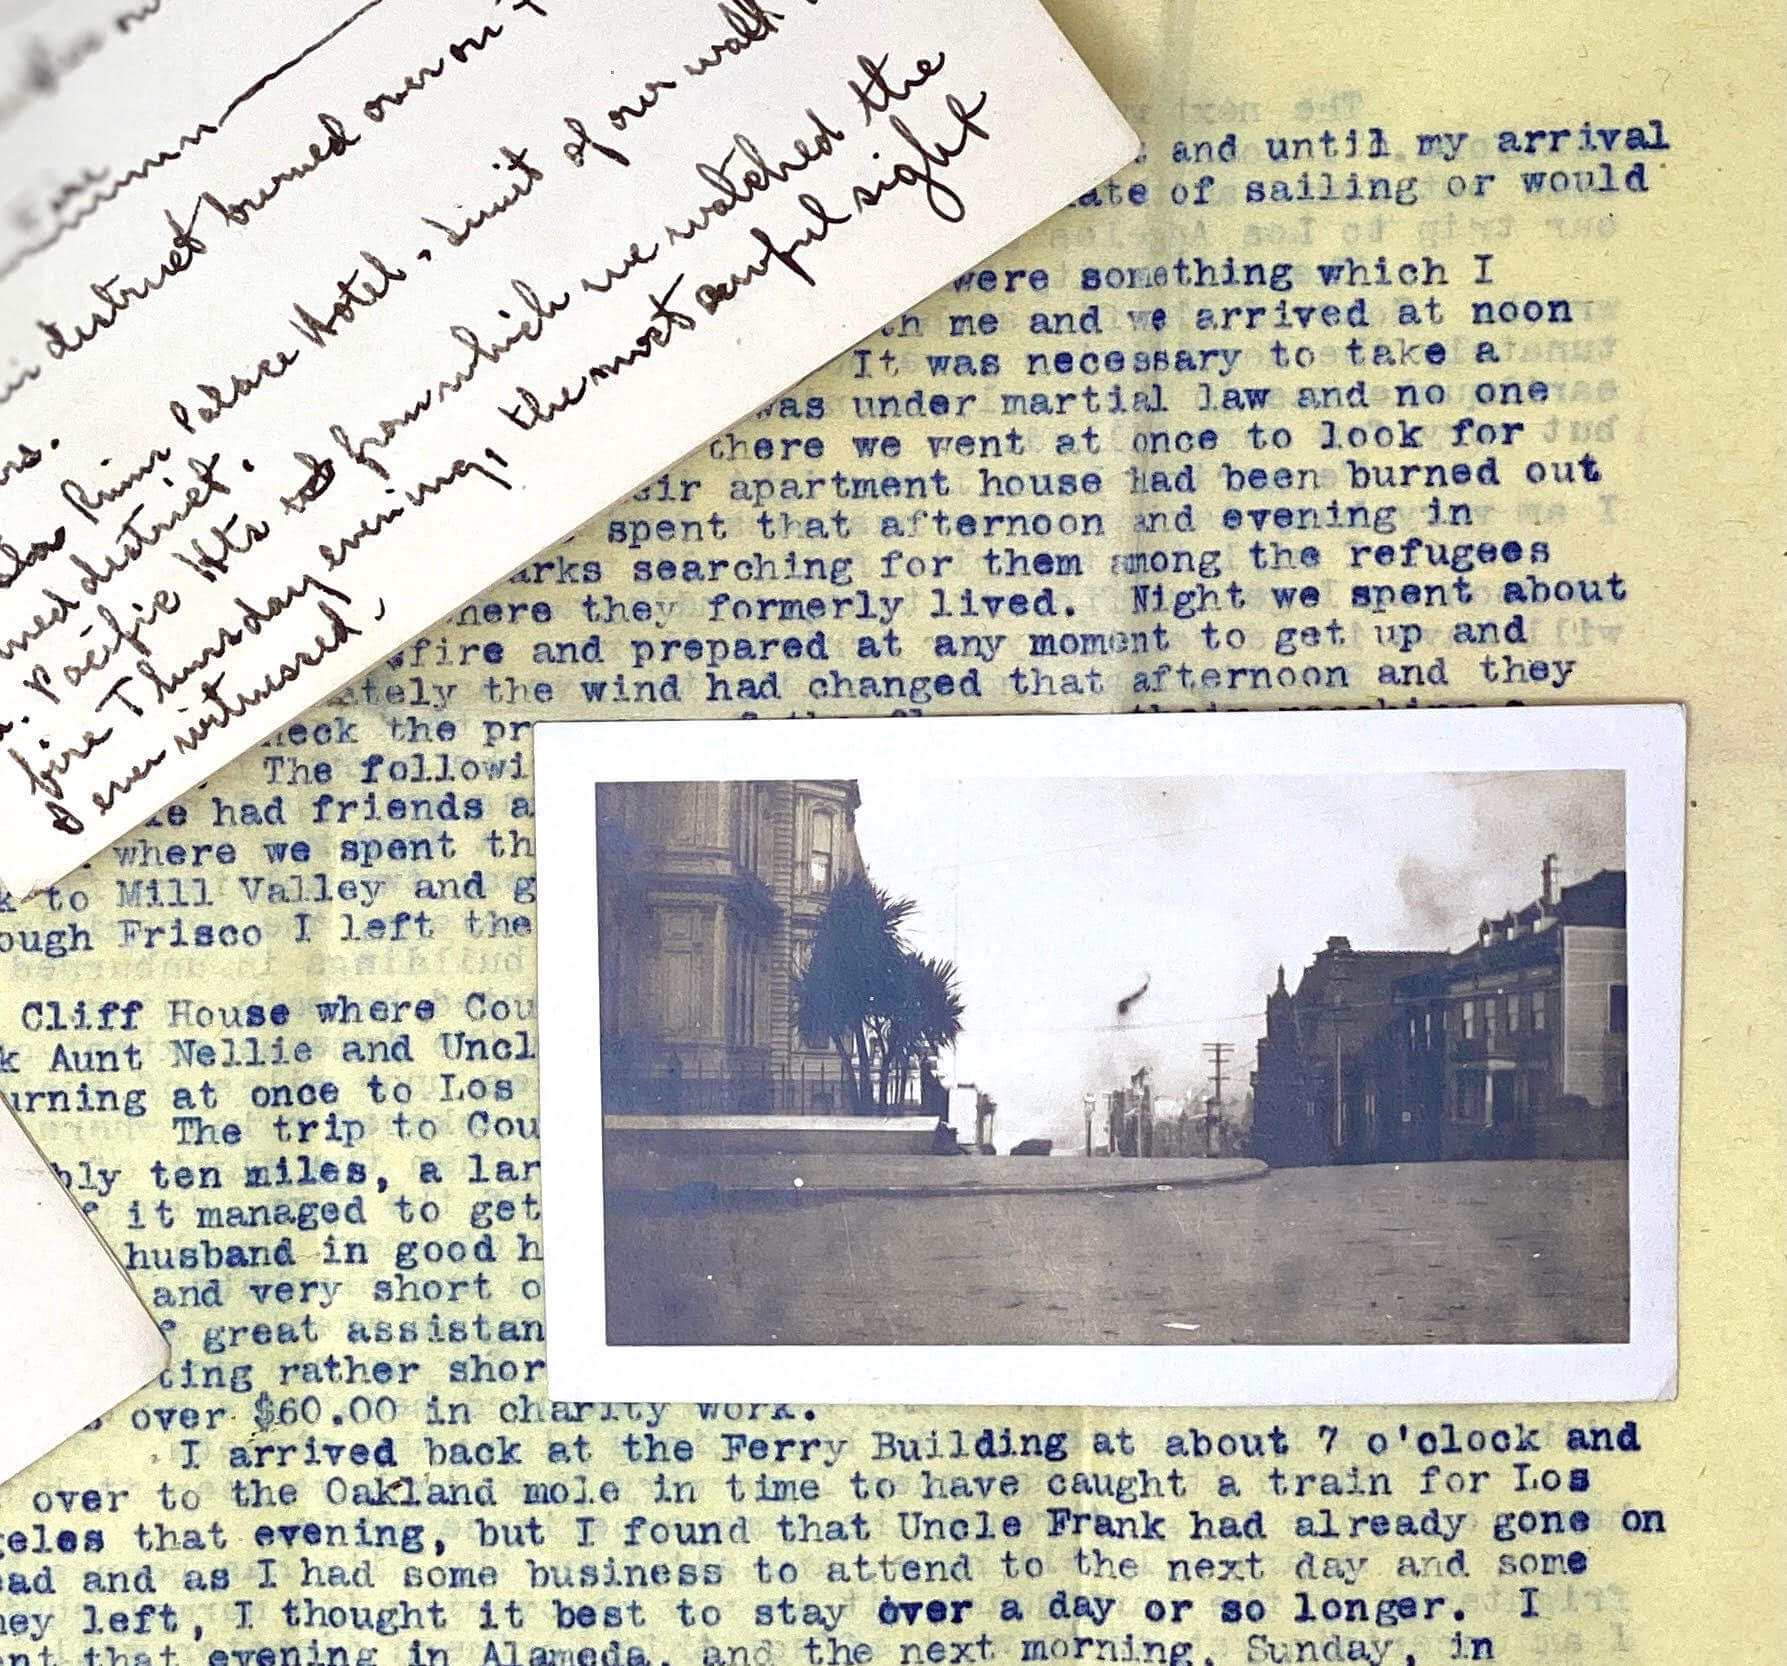 district burned over on
ruins Palace Hotel, limit of our walk
burned district.
Pacific Hts from which we watched the
fire Thursday evening, the most awful sight
I ever witnessed.
and until my arrival
ate of sailing or would
were something which I
th me and we arrived at noon
It was necessary to take a
was under martial law and no one
there we went at once to look for
eir apartment house had been burned out
spent that afternoon and evening in
arks searching for them among the refugees
here they formerly lived. Night we spent about
fire and prepared at any moment to get up and
ately the wind had changed that afternoon and they
heck the pr
The followi
le had friends a
where we spent th
k to Mill Valley and g
ough Frisco I left the
Cliff House where Cou
k Aunt Nellie and Uncl
urning at once to Los
The trip to Cou
bly ten miles, a lar
f it managed to get
husband in good h
and very short o
f great assistan
ting rather shor
over $60.00 in charity work.
I arrived back at the Ferry Building at about 7 o'clock and
over to the Oakland mole in time to have caught a train for Los
geles that evening, but I found that Uncle Frank had already gone on
ead and as I had some business to attend to the next day and some
hey left, I thought it best to stay over a day or so longer. I
ent that evening in Alameda, and the next morning, Sunday, in